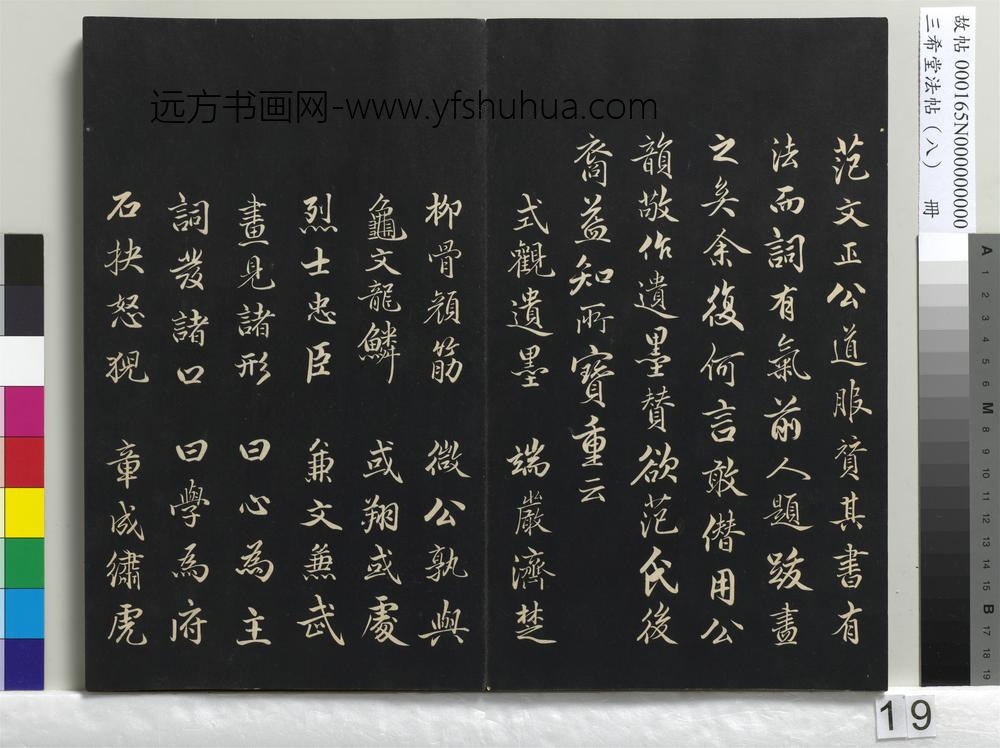 范文正公道服賛其書有
法而詞有氣前人題跋盡
之矣余復何言敢僣用公
韻敬作遺墨賛欲范氏後
裔益知所寶重云
式觀遺墨 端嚴濟楚
柳骨顔筋 微公孰與
龜文龍鱗 或翔或處
烈士忠臣 兼文兼武
畫見諸形 曰心為主
詞發諸口 曰學為府
石抉怒猊 章成繡虎
远方书画网-www.yfshuhua.com
故帖 000165N000000000
三希堂法帖（八） 冊
A 1 2 3 4 5 6 M 8 9 10 11 12 13 14 15 B 17 18 19
19